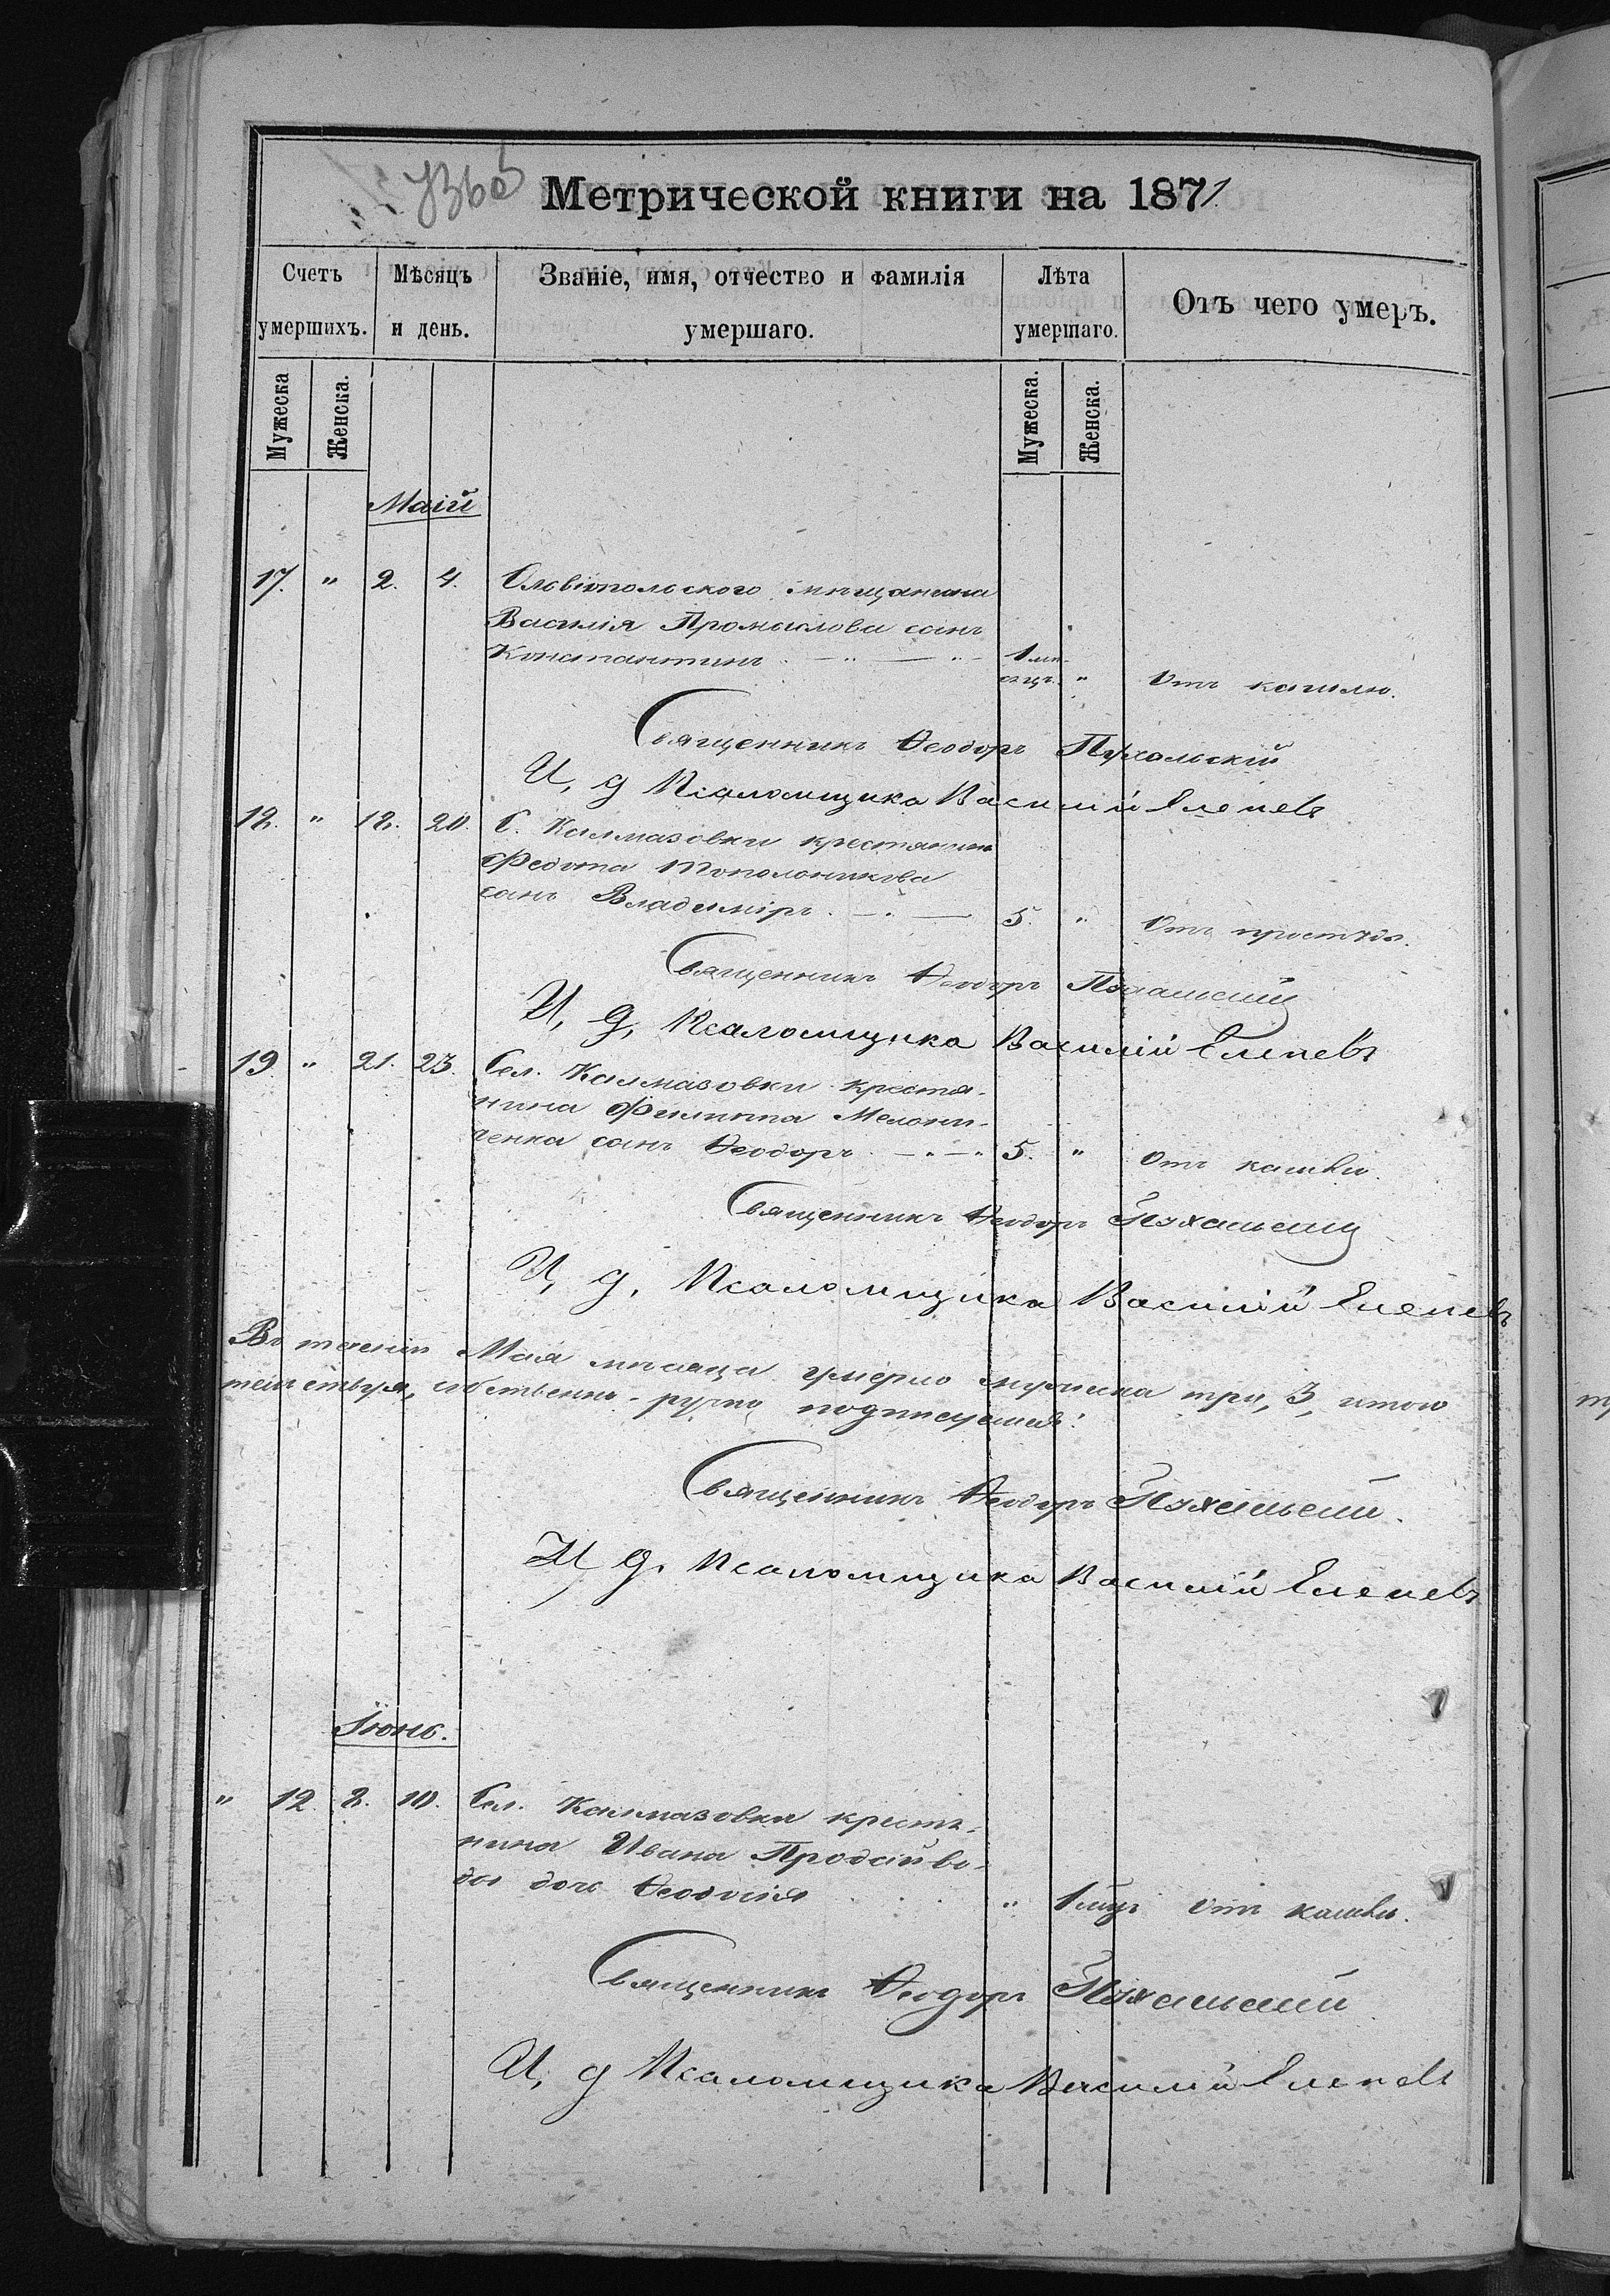 Метрической книги на 1871.
Счетъ умершихъ.
Мѣсяцъ и день.
Званіе, имя, отчество и фамилія умершаго.
Лѣта умершаго.
Отъ чего умеръ.
Мужеска
Женска.
Мужеска.
Женска.
Маій
17. " 2. 4. Ольвіопольского мѣщанина
Василія Промыслова сынъ
Константинъ 1 мѣ-
сяцъ. " Отъ кашлю.
Священникъ Ѳеодоръ Пухальскій
И, д Псаломщика Василій Елепевъ
18. " 18. 20. С. Калмазовки крестянина
Федота Тополоникова
сынъ Владиміръ. 5. " Отъ простуды.
Священникъ Ѳеодоръ Пухальскій
И, д, Псаломщика Василій Елепевъ
19. " 21. 23. Сел. Калмазовки крестя-
нина Филиппа Мельни-
ченка сынъ Ѳеодоръ 5. " Отъ кашлю.
Священникъ Ѳеодоръ Пухальскій
И, д, Псаломщика Василій Елепевъ
Въ теченіи Мая мѣсяца умерло мужеска три, 3, итого
собственно-ручно подписуемъ:
Священникъ Ѳеодоръ Пухальскій.
И, д. Псаломщика Василій Елепевъ
Іюнь.
" 12. 8. 10. Сел. Калмазовки крестя-
нина Ивана Продайво-
ды дочь Ѳеодосія " 1 мцъ Отъ кашлю.
Священникъ Ѳеодоръ Пухальскій
И, д Псаломщика Василій Елепевъ